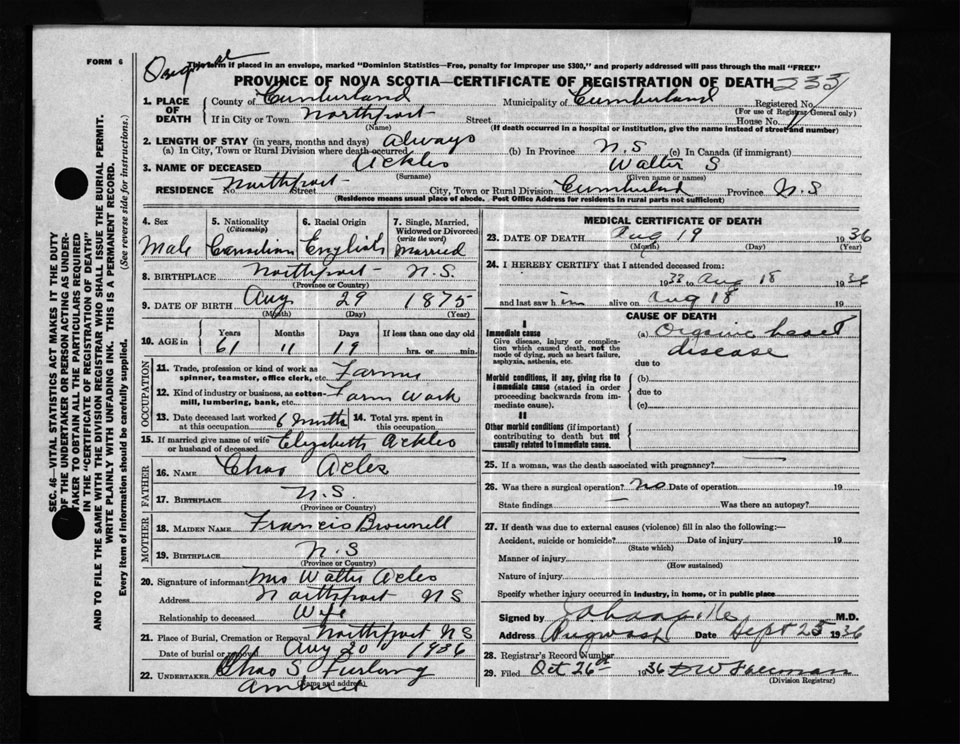 FORM 6
Original
This form if placed in an envelope, marked "Dominion Statistics—Free, penalty for improper use $300," and properly addressed will pass through the mail "FREE"
PROVINCE OF NOVA SCOTIA—CERTIFICATE OF REGISTRATION OF DEATH 233
1. PLACE OF DEATH County of Cumberland Municipality of Cumberland Registered No.
(For use of Registrar General only)
If in City or Town Northport Street House No.
(Name) (If death occurred in a hospital or institution, give the name instead of street and number)
2. LENGTH OF STAY (in years, months and days) always
(a) In City, Town or Rural Division where death occurred (b) In Province N.S (c) In Canada (if immigrant)
3. NAME OF DECEASED Ackles Walter S
(Surname) (Given name or names)
RESIDENCE No. Northport Street City, Town or Rural Division Cumberland Province N.S
(Residence means usual place of abode. Post Office Address for residents in rural parts not sufficient)
4. Sex Male
5. Nationality (Citizenship) Canadian
6. Racial Origin English
7. Single, Married, Widowed or Divorced (write the word) Married
8. BIRTHPLACE Northport N.S.
(Province or Country)
9. DATE OF BIRTH Aug 29 1875
(Month) (Day) (Year)
10. AGE in Years Months Days If less than one day old
61 11 19 hrs. or min.
OCCUPATION
11. Trade, profession or kind of work as spinner, teamster, office clerk, etc. Farmer
12. Kind of industry or business, as cotton-mill, lumbering, bank, etc. Farm Work
13. Date deceased last worked at this occupation 6 months
14. Total yrs. spent in this occupation
15. If married give name of wife or husband of deceased Elizabeth Ackles
FATHER
16. NAME Chas Acles
17. BIRTHPLACE N.S.
(Province or Country)
MOTHER
18. MAIDEN NAME Francis Brownell
19. BIRTHPLACE N.S
(Province or Country)
20. Signature of informant Mrs Walter Acles
Address Northport NS
Relationship to deceased Wife
21. Place of Burial, Cremation or Removal Northport NS
Date of burial or removal Aug 20 1936
22. UNDERTAKER Chas S Furlong
Amherst
(Name and address)
MEDICAL CERTIFICATE OF DEATH
23. DATE OF DEATH Aug 19 1936
(Month) (Day) (Year)
24. I HEREBY CERTIFY that I attended deceased from:
1933 Aug 18 1936
and last saw him alive on Aug 18 19
CAUSE OF DEATH
I
Immediate cause
Give disease, injury or complication which caused death, not the mode of dying, such as heart failure, asphyxia, asthenia, etc.
(a) Organic heart disease
due to
Morbid conditions, if any, giving rise to immediate cause (stated in order proceeding backwards from immediate cause).
(b)
due to
(c)
II
Other morbid conditions (if important) contributing to death but not causally related to immediate cause.
25. If a woman, was the death associated with pregnancy? —
26. Was there a surgical operation? No Date of operation 19
State findings — Was there an autopsy?
27. If death was due to external causes (violence) fill in also the following:—
Accident, suicide or homicide? Date of injury 19
(State which)
Manner of injury
(How sustained)
Nature of injury
Specify whether injury occurred in industry, in home, or in public place
Signed by M.D.
Address Pugwash Date Sept 25 1936
28. Registrar's Record Number
29. Filed Oct 26th 1936
(Division Registrar)
SEC. 46—VITAL STATISTICS ACT MAKES IT THE DUTY
OF THE UNDERTAKER OR PERSON ACTING AS UNDER-
TAKER TO OBTAIN ALL THE PARTICULARS REQUIRED
IN THE "CERTIFICATE OF REGISTRATION OF DEATH"
AND TO FILE THE SAME WITH THE DIVISION REGISTRAR WHO SHALL ISSUE THE BURIAL PERMIT.
WRITE PLAINLY WITH UNFADING INK. THIS IS A PERMANENT RECORD.
Every item of information should be carefully supplied. (See reverse side for instructions.)